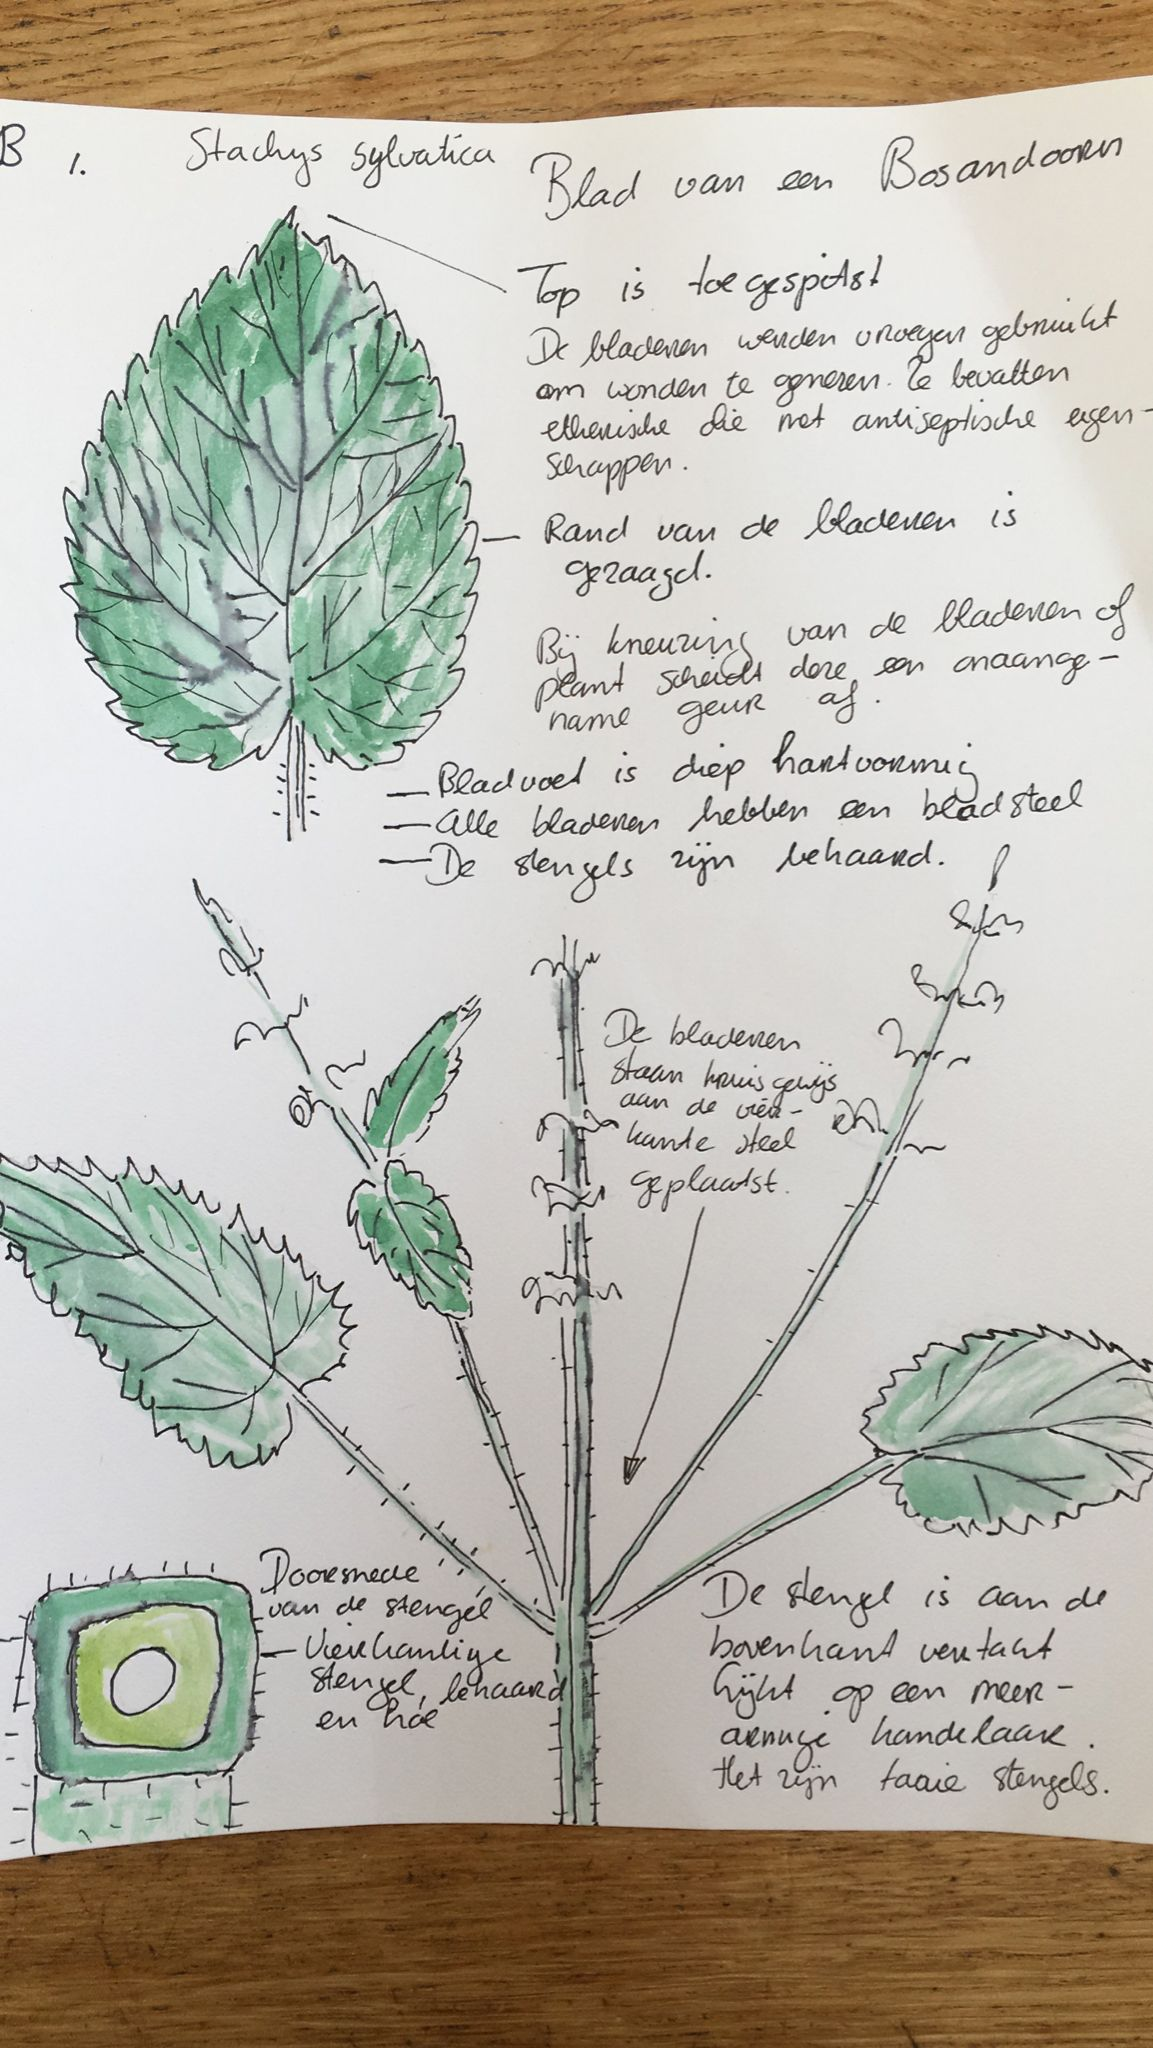 B 1. Stachys sylvatica
Blad van een Bosandoorn
Top is toegespitst
De bladeren werden vroeger gebruikt
om wonden te genezen. Ze bevatten
etherische olie met antiseptische eigen-
schappen.
Rand van de bladeren is
gezaagd.
Bij kneuzing van de bladeren of
plant scheidt deze een onaange-
name geur af.
Bladvoet is diep hartvormig
Alle bladeren hebben een bladsteel
De stengels zijn behaard.
De bladeren
staan kruisgewijs
aan de vier-
kante steel
geplaatst.
Doorsnede
van de stengel
Vierkantige
stengel, behaard
en hol
De stengel is aan de
bovenkant vertakt
lijkt op een meer-
armige kandelaar.
Het zijn taaie stengels.